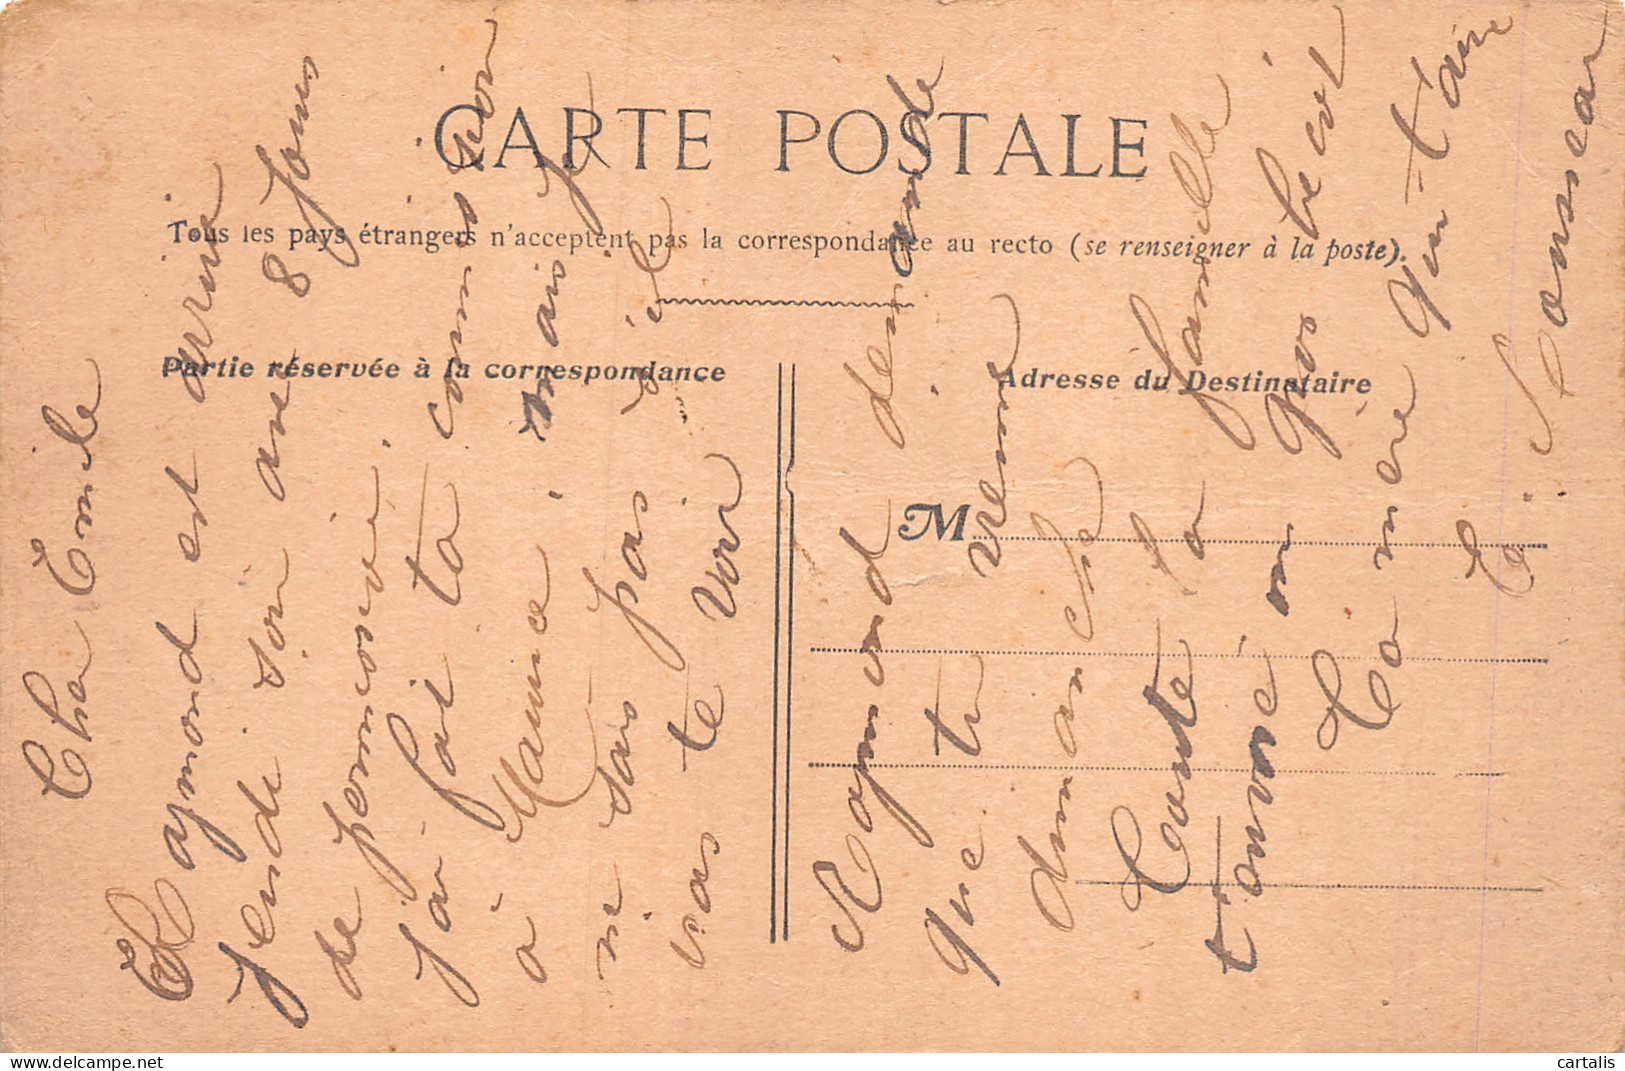 CARTE POSTALE
Tous les pays étrangers n'acceptent pas la correspondance au recto (se renseigner à la poste).
Partie réservée à la correspondance
Adresse du Destinataire
M
Cher Emile
Raymond est arrivé
jeudi soir avec 8 jours
de permission.
j'ai fait ta commission
à Maurice, mais je
ne sais pas s'il
vas te voir
Raymond demande
que tu vienne
dimanche
Toute la famille
t'envoie un gros bécot
Ta mère qui t'aime
E. Rousseau
cartalis